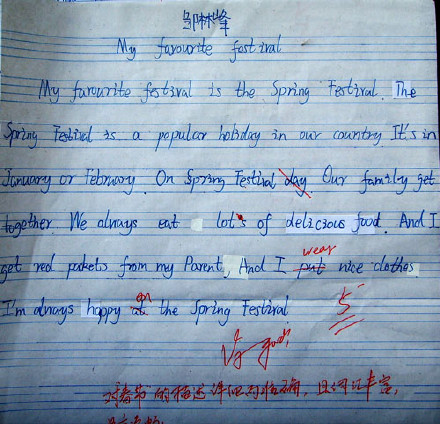 邹林峰
My favourite festival
My favourite festival is the Spring Festival. The
Spring Festival is a popular holiday in our country It's in
January or February. On Spring Festival day. Our family get
together. We always eat lot's of delicious food. And I
wear
get red pakets from my Parent, And I put nice clothes.
on
I'm always happy at the Spring Festival
5
Vg good!
对春节的描述详细而准确，且词汇丰富，